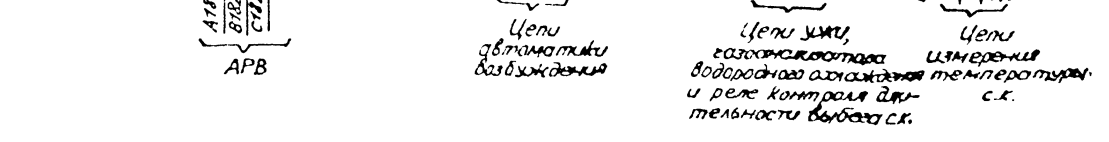 А18
В182
С182
АРВ
Цепи
автоматики
возбуждения
Цепи
газоанализатора
водородного охлаждения
и реле контроля дли-
тельности выбега с.к.
Цепи
измерения
температуры
с.к.